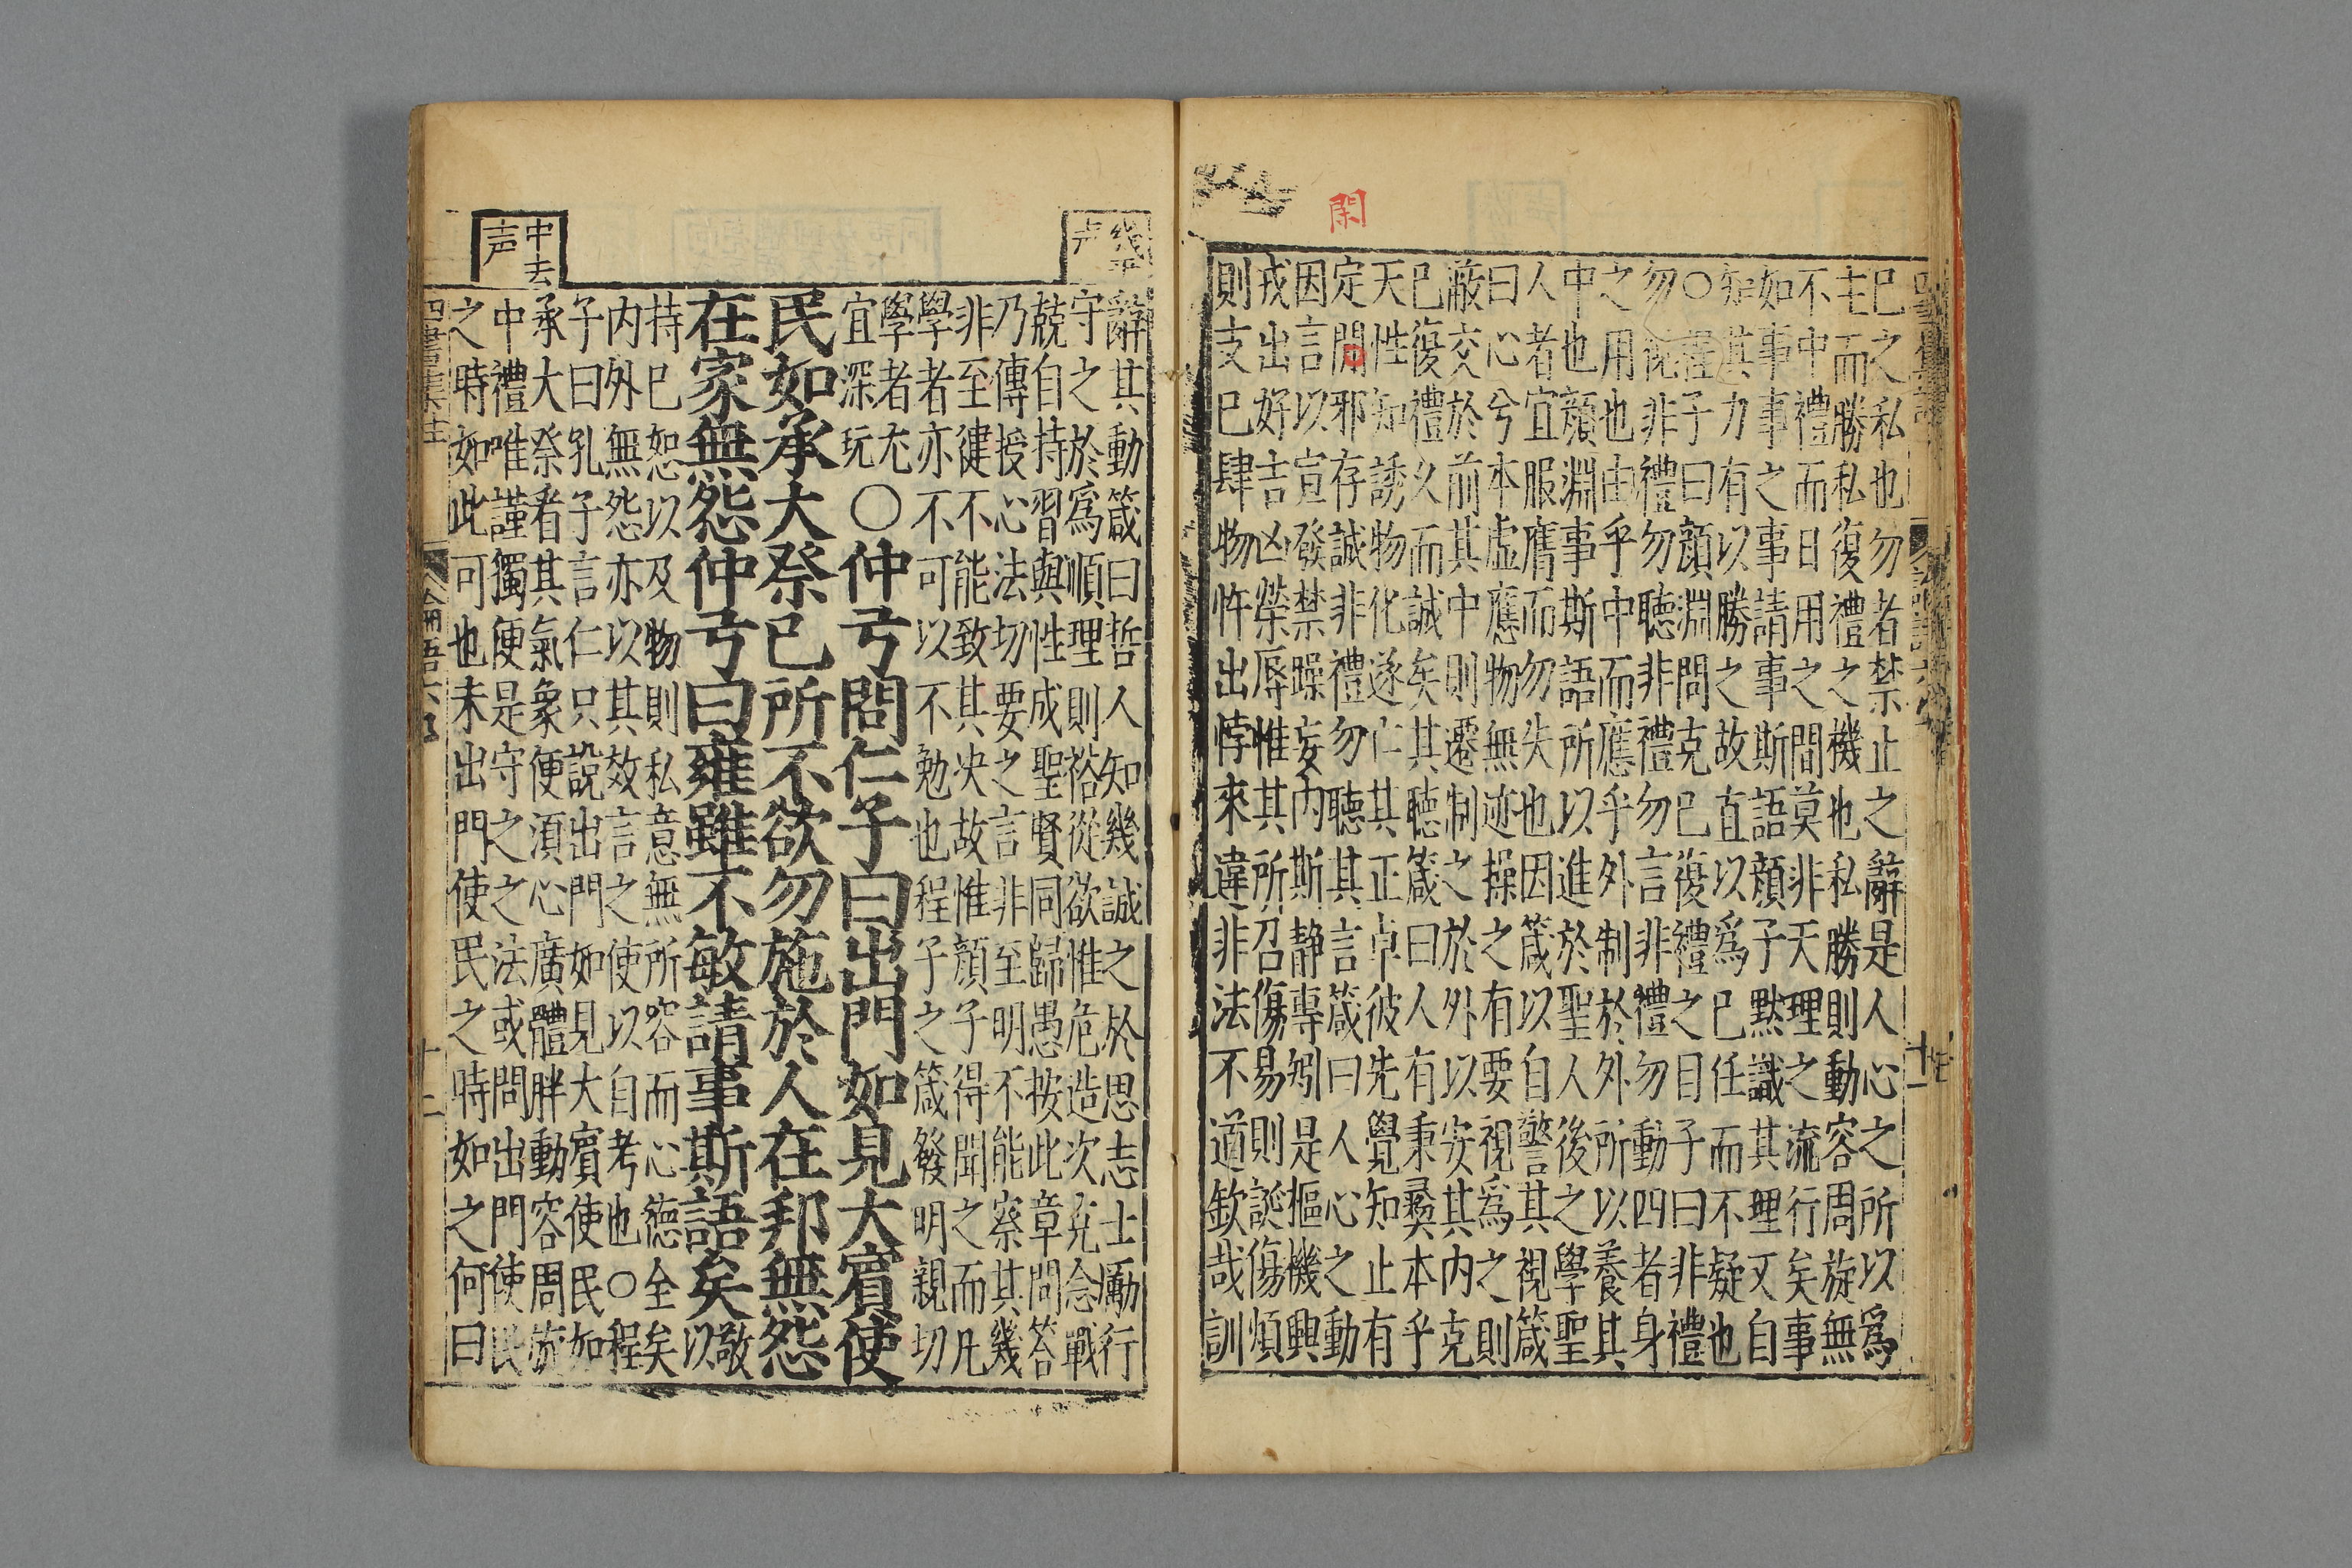 閑
已之私也勿者禁止之辭是人心之所以爲
主而勝私復禮之機也私勝則動容周旋無
不中禮而日用之間莫非天理之流行矣事
如事事之事請事斯語顔子黙識其理又自
知其力有以勝之故直以爲已任而不疑也
○程子曰顔淵問克已復禮之目子曰非禮
勿視非禮勿聽非禮勿言非禮勿動四者身
之用也由乎中而應乎外制於外所以養其
中也顔淵事斯語所以進於聖人後之學聖
人者宜服膺而勿失也因箴以自警其視箴
曰心兮本虛應物無迹操之有要視爲之則
蔽交於前其中則遷制之於外以安其内克
已復禮久而誠矣其聽箴曰人有秉彝本乎
天性知誘物化遂亡其正卓彼先覺知止有
定閒邪存誠非禮勿聽其言箴曰人心之動
因言以宣發禁躁妄内斯静專矧是樞機興
戎出好吉凶榮辱惟其所召傷易則誕傷煩
則支已肆物忤出悖來違非法不道欽哉訓
幾平
声
辭其動箴曰哲人知幾誠之於思志士勵行
守之於爲順理則裕從欲惟危造次克念戰
兢自持習與性成聖賢同歸愚按此章問荅
乃傳授心法切要之言非至明不能察其幾
非至徤不能致其决故惟顔子得聞之而凡
學者亦不可以不勉也程子之箴發明親切
學者尤
宜深玩
○仲弓問仁子曰出門如見大賓使
民如承大祭已所不欲勿施於人在邦無怨
在家無怨仲弓曰雍雖不敏請事斯語矣
敬
以
持已恕以及物則私意無所容而心德全矣
内外無怨亦以其效言之使以自考也○程
子曰孔子言仁只說出門如見大賓使民如
承大祭看其氣象便須心廣體胖動容周旋
中禮唯謹獨便是守之之法或問出門使民
之時如此可也未出門使民之時如之何曰
中去
声
四書集註
論語六
十二